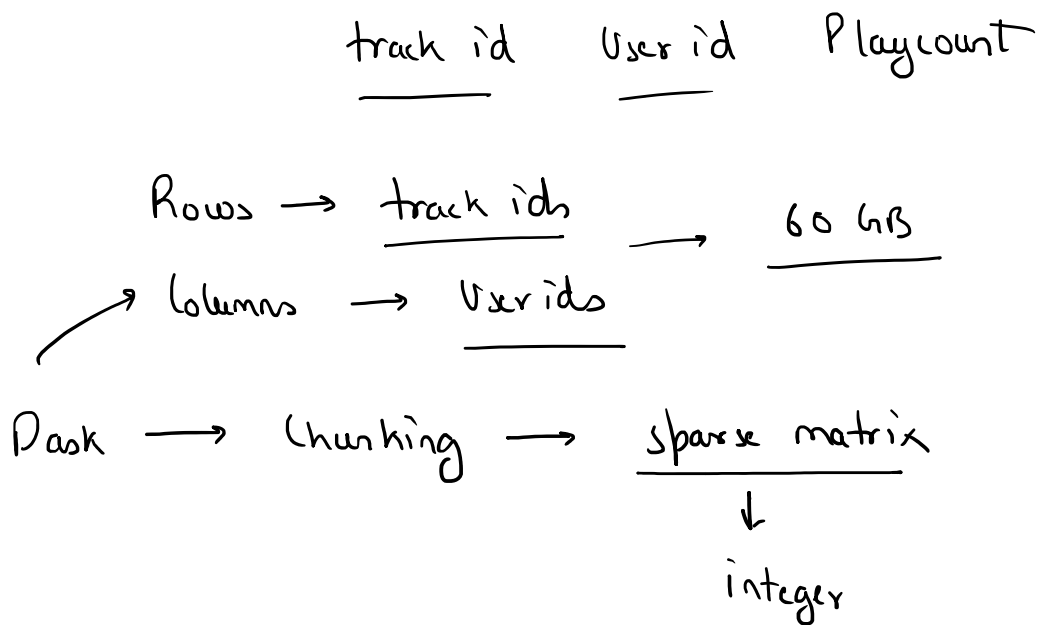 track id User id Playcount
Rows → track ids → 60 GB
Columns → User ids
Dask → Chunking → sparse matrix
↓
integer